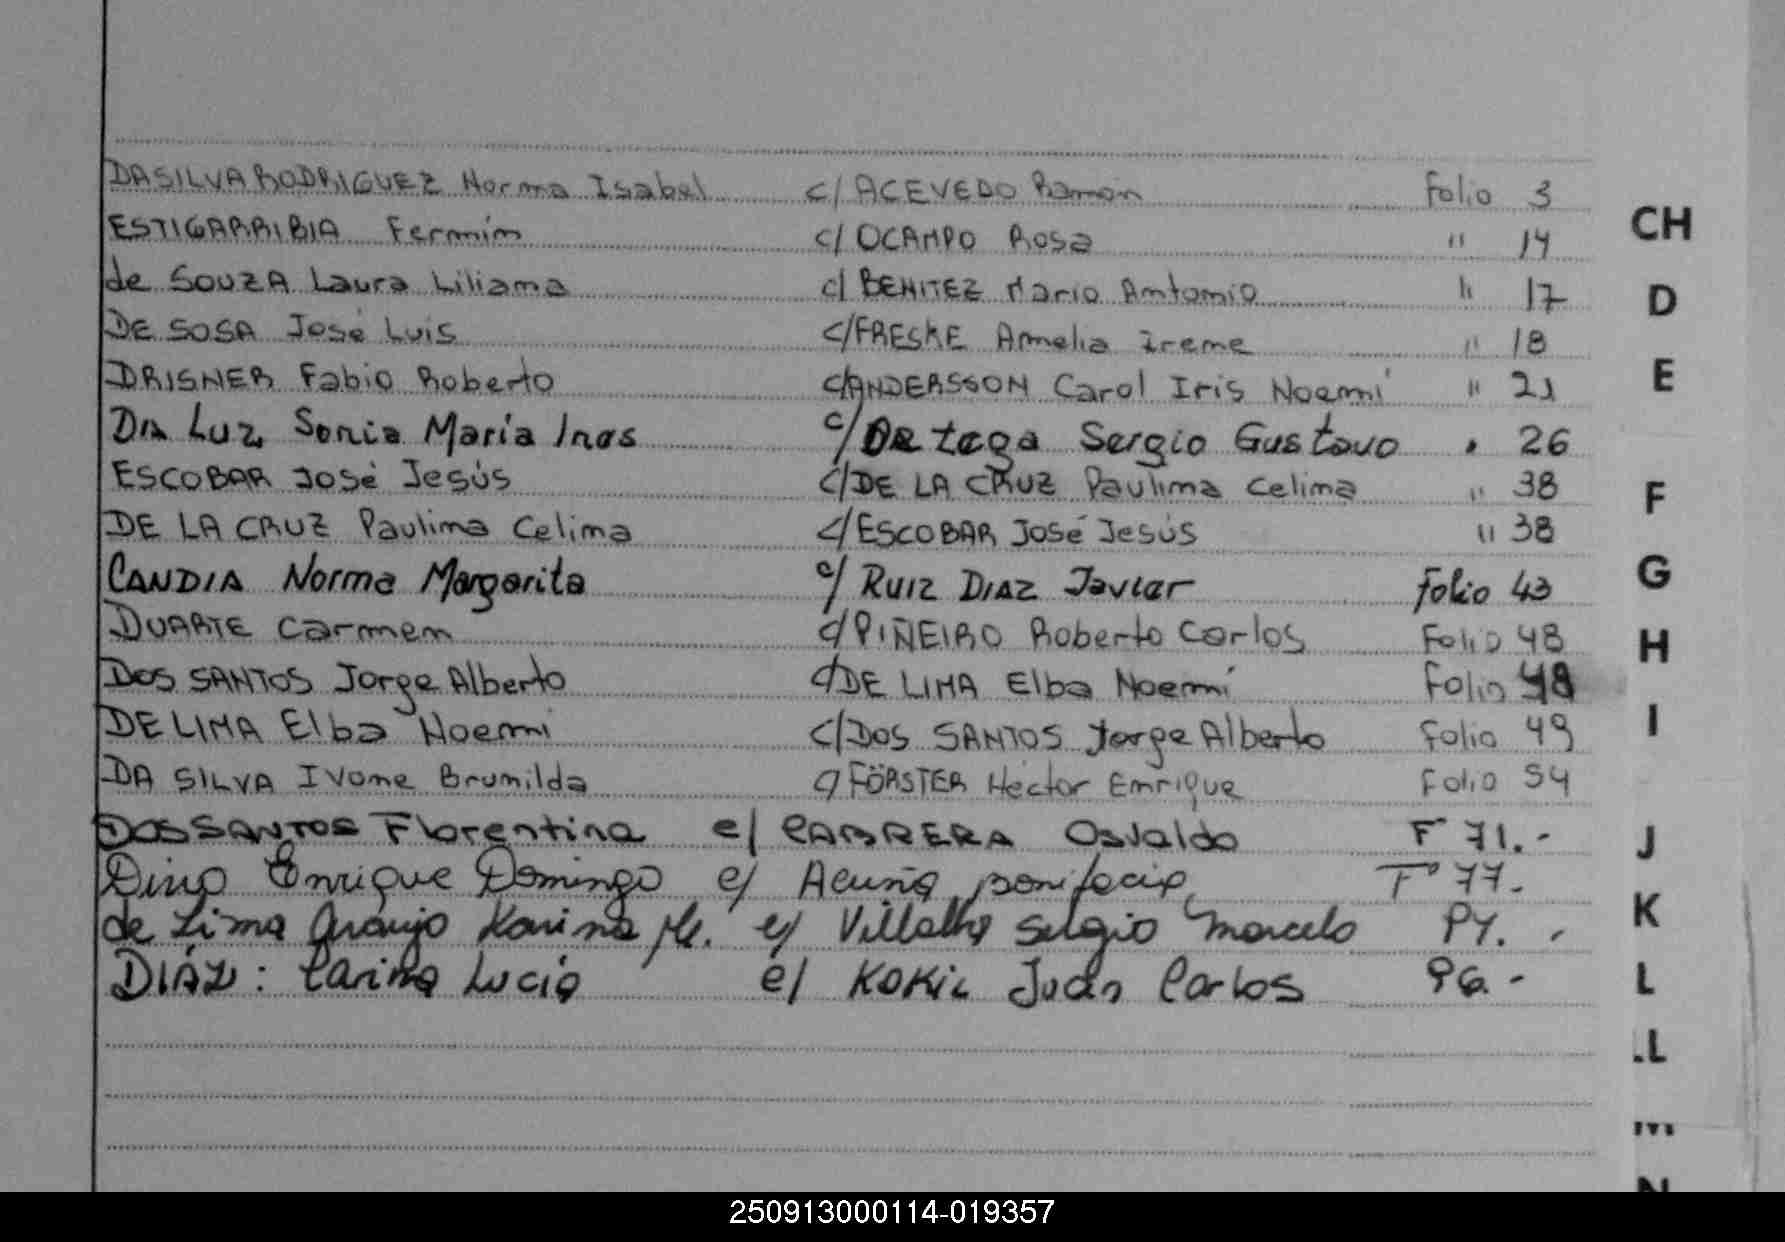 DASILVA RODRIGUEZ Norma Isabel c/ ACEVEDO Ramón Folio 3
ESTIGARRIBIA Fermín c/ OCAMPO Rosa " 14
de SOUZA Laura Liliana c/ BENITEZ Mario Antonio " 17
DE SOSA José Luis c/ FRESKE Amelia Irene " 18
DRISNER Fabio Roberto c/ ANDERSSON Carol Iris Noemí " 21
DA LUZ Sonia María Ines c/ ORtega Sergio Gustavo " 26
ESCOBAR José Jesús c/ DE LA CRUZ Paulina Celina " 38
DE LA CRUZ Paulina Celina c/ ESCOBAR José Jesús " 38
CANDIA Norma Margarita c/ RUIZ DIAZ Javier Folio 43
DUARTE Carmen c/ PIÑEIRO Roberto Carlos Folio 48
DOS SANTOS Jorge Alberto c/ DE LIMA Elba Noemí Folio 48
DE LIMA Elba Noemi c/ DOS SANTOS Jorge Alberto Folio 49
DA SILVA Ivone Brunilda c/ FÖRSTER Héctor Enrique Folio 54
DOS SANTOS Florentina c/ CABRERA Osvaldo F° 71.-
Dino Enrique Domingo c/ Acuña bonifacia F° 77.-
de Lima Araujo Karina c/ Sergio Marcelo
DIAZ: Carina Lucia c/ KOKIC Juan Carlos 96.-
CH
D
E
F
G
H
I
J
K
L
LL
M
N
250913000114-019357